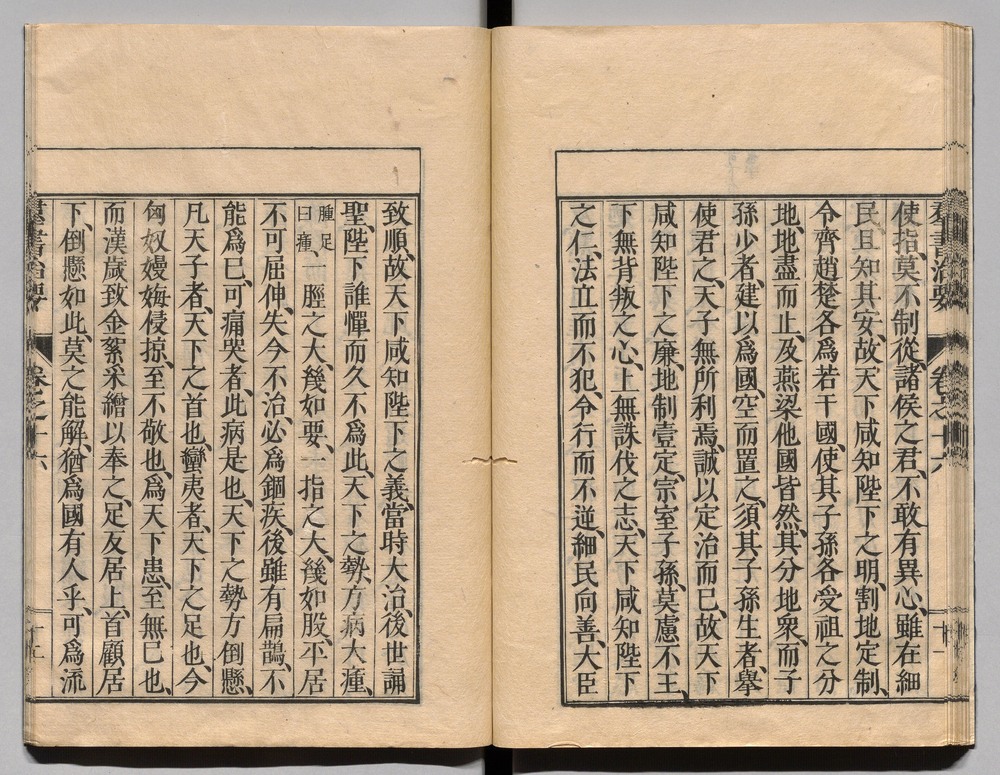 使指、莫不制從、諸侯之君、不敢有異心、雖在細
民、且知其安、故天下咸知陛下之明、割地定制、
令齊趙楚各爲若干國、使其子孫各受祖之分
地、地盡而止、及燕梁他國皆然、其分地衆、而子
孫少者、建以爲國、空而置之、須其子孫生者、擧
使君之、天子無所利焉、誠以定治而巳、故天下
咸知陛下之廉、地制壹定、宗室子孫、莫慮不王、
下無背叛之心、上無誅伐之志、天下咸知陛下
之仁、法立而不犯、令行而不逆、細民向善、大臣
致順、故天下咸知陛下之義、當時大治、後世誦
聖、陛下誰憚而久不爲此、天下之勢、方病大瘇、
腫足
曰瘇、
一脛之大、幾如要、一指之大、幾如股、平居
不可屈伸、失今不治、必爲錮疾、後雖有扁鵲、不
能爲巳、可痛哭者、此病是也、天下之勢方倒懸、
凡天子者、天下之首也、蠻夷者、天下之足也、今
匈奴嫚侮侵掠、至不敬也、爲天下患、至無巳也、
而漢歲致金絮釆繒以奉之、足反居上、首顧居
下、倒懸如此、莫之能解、猶爲國有人乎、可爲流
羣書治要 卷之十六